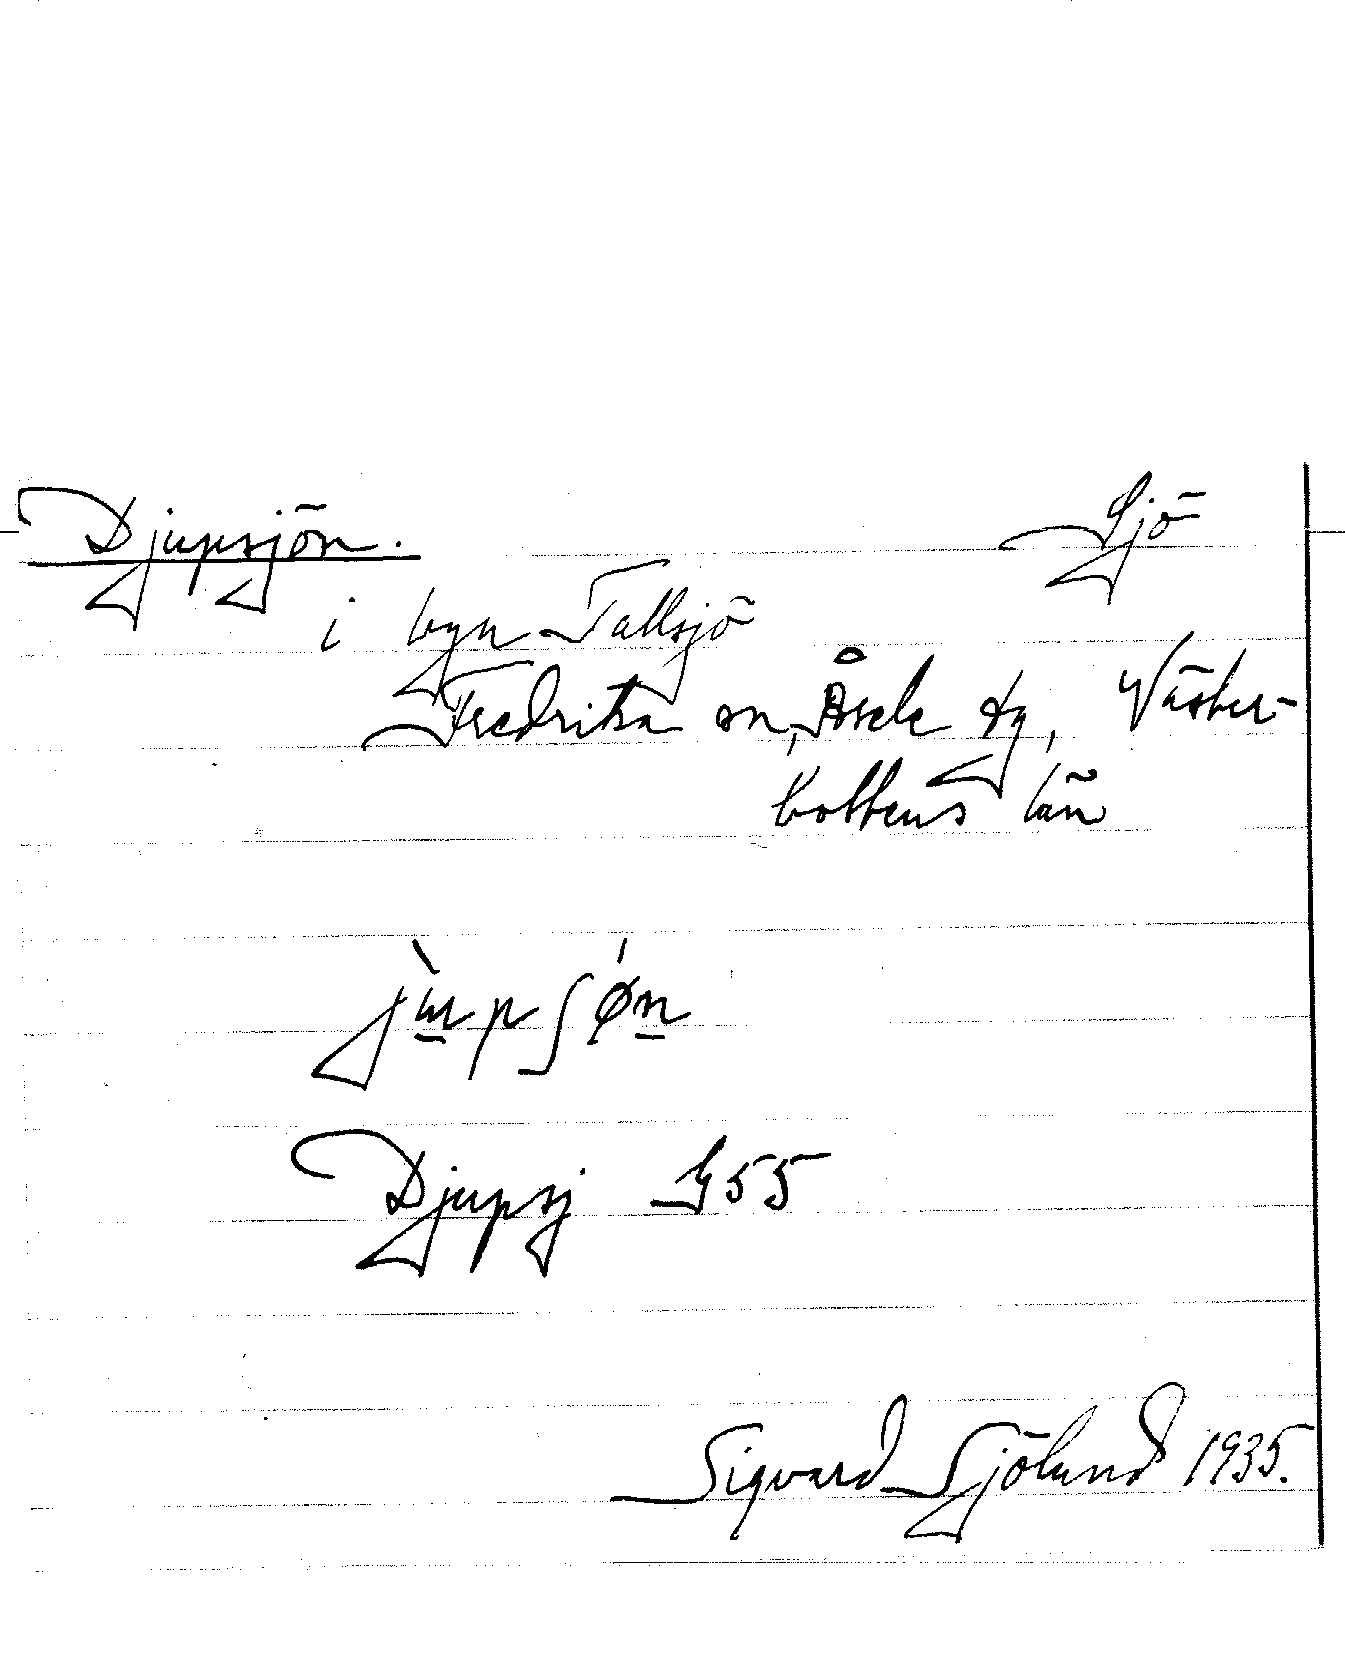 Djupsjön. Sjö
i byn Tallsjö
Fredrika sn, Åsele tg, Väster-
bottens län
jùpʃǿn
Djupsj G55
Sigvard Sjölund 1935.